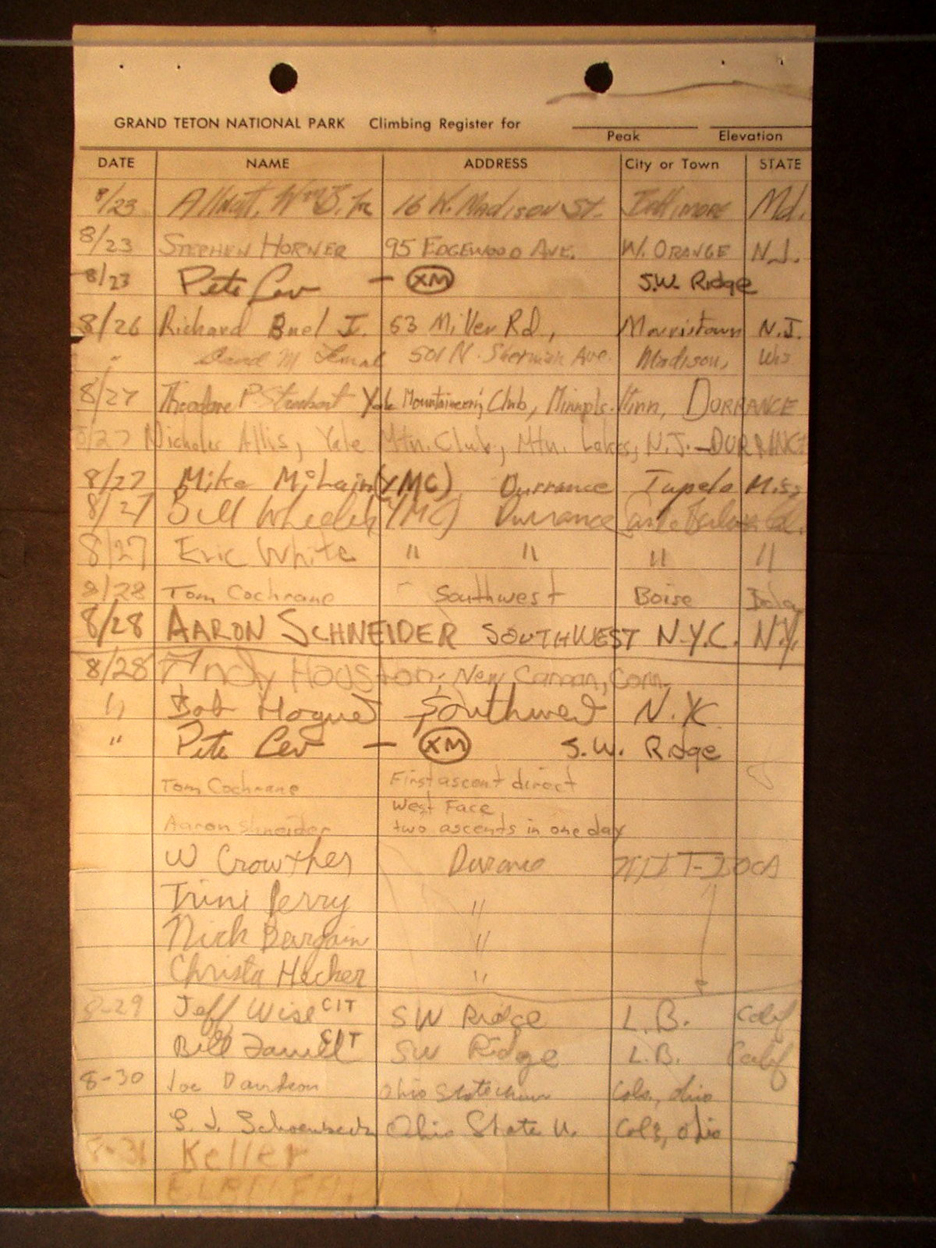 GRAND TETON NATIONAL PARK Climbing Register for
Peak Elevation
DATE NAME ADDRESS City or Town STATE
8/23 Wm 16 W. Madison St. Baltimore Md.
8/23 STEPHEN HORNER 95 EDGEWOOD AVE. W. ORANGE N.J.
8/23 Pete Lev — XM S.W. Ridge
8/26 Richard J. 53 Miller Rd, Morristown N.J.
" M 501 N. Sherman Ave. Madison, Wis
8/27 Theodore P Yale Mountaineering Club, Minnpls. Minn, DURRANCE
8/27 Nicholas Allis, Yale Mtn. Club, Mtn. Lakes, N.J. — DURRANCE
8/27 Mike McLain (YMC) Durrance Tupelo Miss
8/27 Bill Wheeler (YMC) Durrance
8/27 Eric White " " " "
8/28 Tom Cochrane Southwest Boise Idaho
8/28 AARON SCHNEIDER SOUTHWEST N.Y.C. N.Y.
8/28 Andy Houston, New Canaan, Conn.
" Bob Southwest N.Y.
" Pete Lev — XM S.W. Ridge
Tom Cochrane First ascent direct
West Face
Aaron Shneider two ascents in one day
W Crowther MIT-IOCA
Perry "
Nick "
Christa Hecker "
8-29 Jeff Wise CIT SW Ridge L.B. Calif
Bill CIT SW Ridge L.B. Calif
8-30 Joe Davidson Ohio State Cols, Ohio
S. J. Ohio State U. Cols, Ohio
8-31 Keller